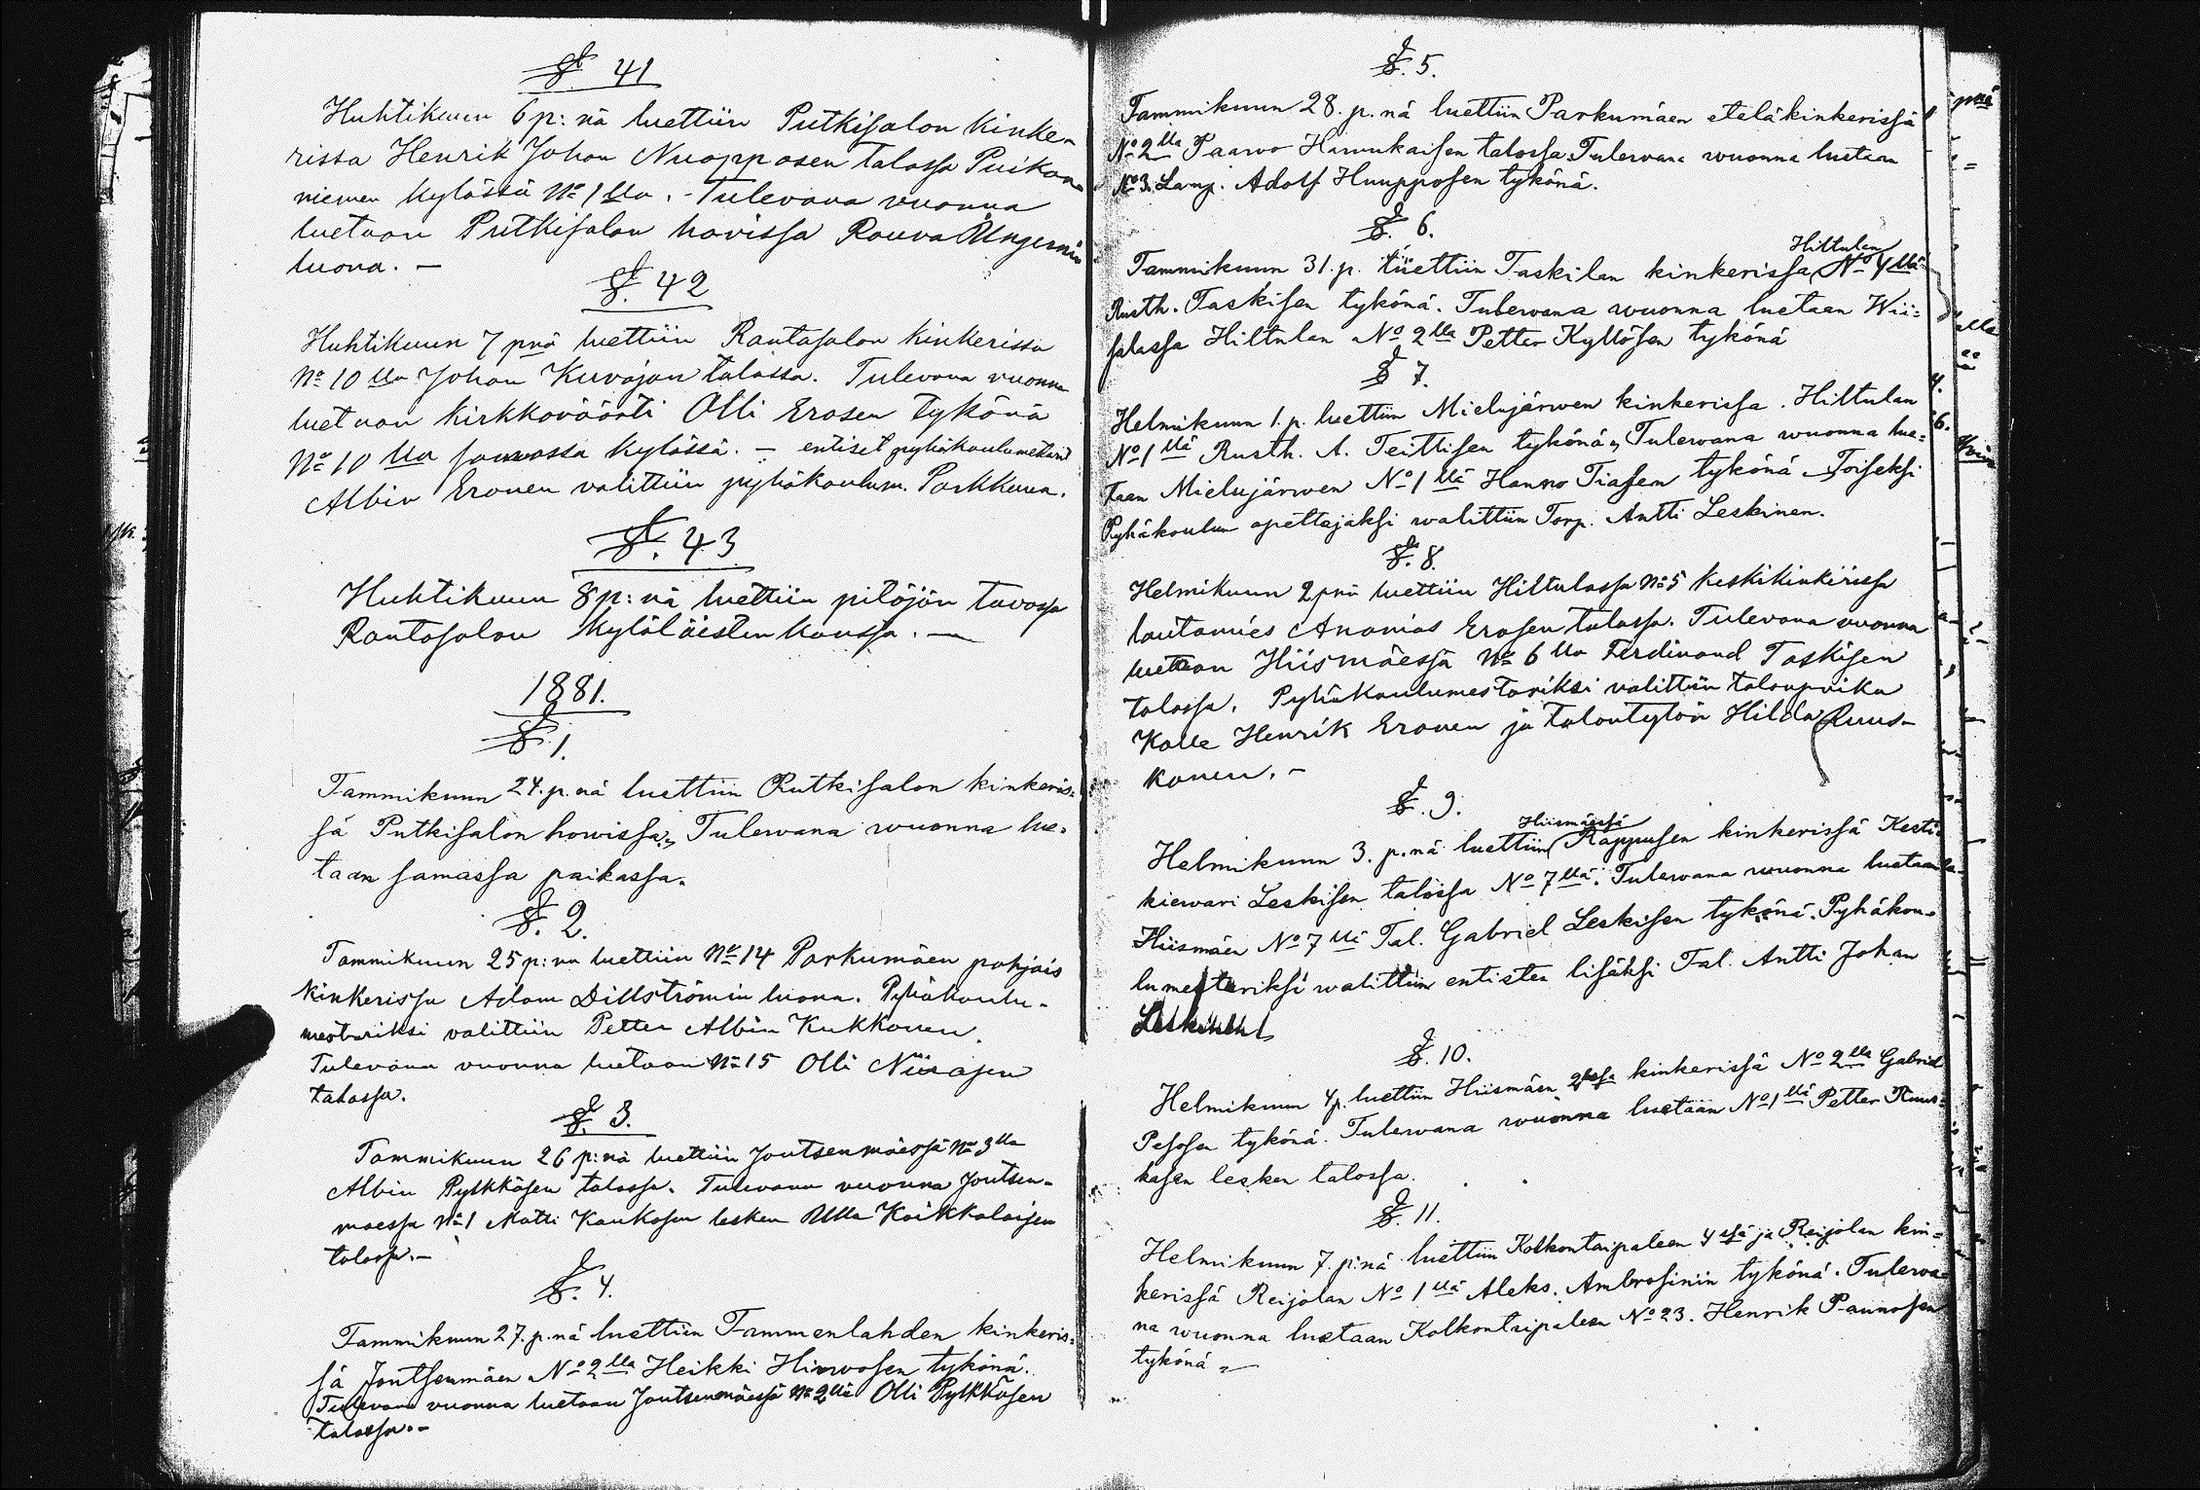 § 41
Huhtikuun 6 p:nä luettiin Putkisalon kinke-
rissa Henrik Johan Nuopposen talossa Puikon
niemen kylässä No 1 lla. - Tulevana vuonna
luetaan Putkisalon hovissa Rouva Ungernin
luona. -
§. 42
Huhtikuun 7 pnä luettiin Rantasalon kinkerissa
No 10 lla Johan Kuvajan talossa. Tulevana vuonna
luetaan kirkkoväärti Olli Erosen tykönä
No 10 lla samassa kylässä. - entiset pyhäkoulumestarit
Albin Eronen valittiin pyhäkoulum. Parkkuna.
§. 43
Huhtikuun 8 p:nä luettiin pitäjän tuvassa
Rantasalon kyläläisten kanssa. -
1881.
§. 1.
Tammikuun 24. p. nä luettiin Putkisalon kinkeris-
sä Putkisalon howissa. Tulewana wuonna lue-
taan samassa paikassa.
§. 2.
Tammikuun 25 p:nä luettiin No 14 Parkumäen pohjois
kinkerissa Adam Dillströmin luona. Pyhäkoulu-
mestariksi valittiin Petter Albin Kukkonen.
Tulevana vuonna luetaan No 15 Olli Niirasen
talossa.
§. 3.
Tammikuun 26 p:nä luettiin Joutsenmäessä No 3 lla
Albin Pylkkäsen talossa. Tulevana vuonna Joutsen-
maessa No 1 Matti Kaukosen lesken Ulla Koikkalaisen
talossa. -
§. 4.
Tammikuun 27. p. nä luettiin Tammenlahden kinkeris-
sä Joutsenmäen No 2 lla Heikki Hirwosen tykönä.
Tulevana vuonna luetaan Joutsenmäessä No 2 lla Olli Pylkkäsen
talossa. -
§. 5.
Tammikuun 28. p. nä luettiin Parkumäen eteläkinkerissä
No 2 lla Paawo Hannukaisen talossa. Tulewana wuonna luetaan
No 3. Lamp. Adolf Huupposen tykönä.
§. 6.
Hiltulan
Tammikuun 31. p. luettiin Taskilan kinkerissa No 4 llä
Rusth. Taskisen tykönä. Tulewana wuonna luetaan Wii-
salassa Hiltulan No 2 lla Petter Kyllösen tykönä
§ 7.
Helmikuun 1. p. luettiin Mielujärwen kinkerissa. Hiltulan
No 1 llä Rusth. A. Teittisen tykönä. Tulewana wuonna lue-
taan Mielujärwen No 1 llä Hanno Tiasen tykönä. Toiseksi
Pyhäkoulun opettajaksi walittiin Torp. Antti Leskinen.
§. 8.
Helmikuun 2 pnä luettiin Hiltulassa No 5 keskikinkerissa
lautamies Ananias Erosen talossa. Tulevana vuonna
luetaan Hiismäessä No 6 lla Ferdinand Taskisen
talossa. Pyhäkoulumestariksi valittiin talonpoika
Kalle Henrik Eronen ja talontytön Hilda Ruus-
konen. -
§. 9.
Hiismäessä
Helmikuun 3. p. nä luettiin Rappusen kinkerissä Kesti-
kiewari Leskisen talossa No 7 llä. Tulewana wuonna luetaan
Hiismäen No 7 llä Tal. Gabriel Leskisen tykönä. Pyhäkou-
lumestariksi walittiin entisten lisäksi Tal. Antti Johan
Leskinen
§. 10.
Helmikuun 4 p. luettiin Hiismäen 2sessa kinkerissä No 2 lla Gabriel
Pesosen tykönä. Tulewana wuonna luetaan No 1 llä Petter Ruus-
kasen lesken talossa.
§. 11.
Helmikuun 7. p:nä luettiin Kolkontaipaleen 4 ssä ja Reijolan kin-
kerissä Reijolan No 1 llä Aleks. Ambrosinin tykönä. Tulewa-
na wuonna luetaan Kolkontaipaleen No 23. Henrik Paunosen
tykönä